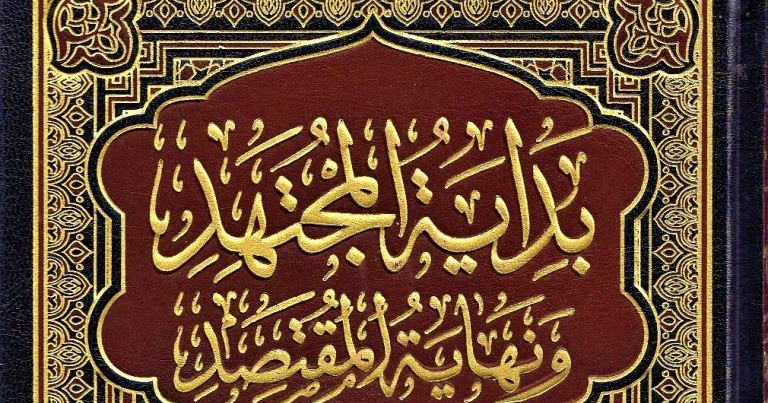 بِدَايَةُ الْمُجْتَهِدِ
وَنِهَايَةُ الْمُقْتَصِدِ